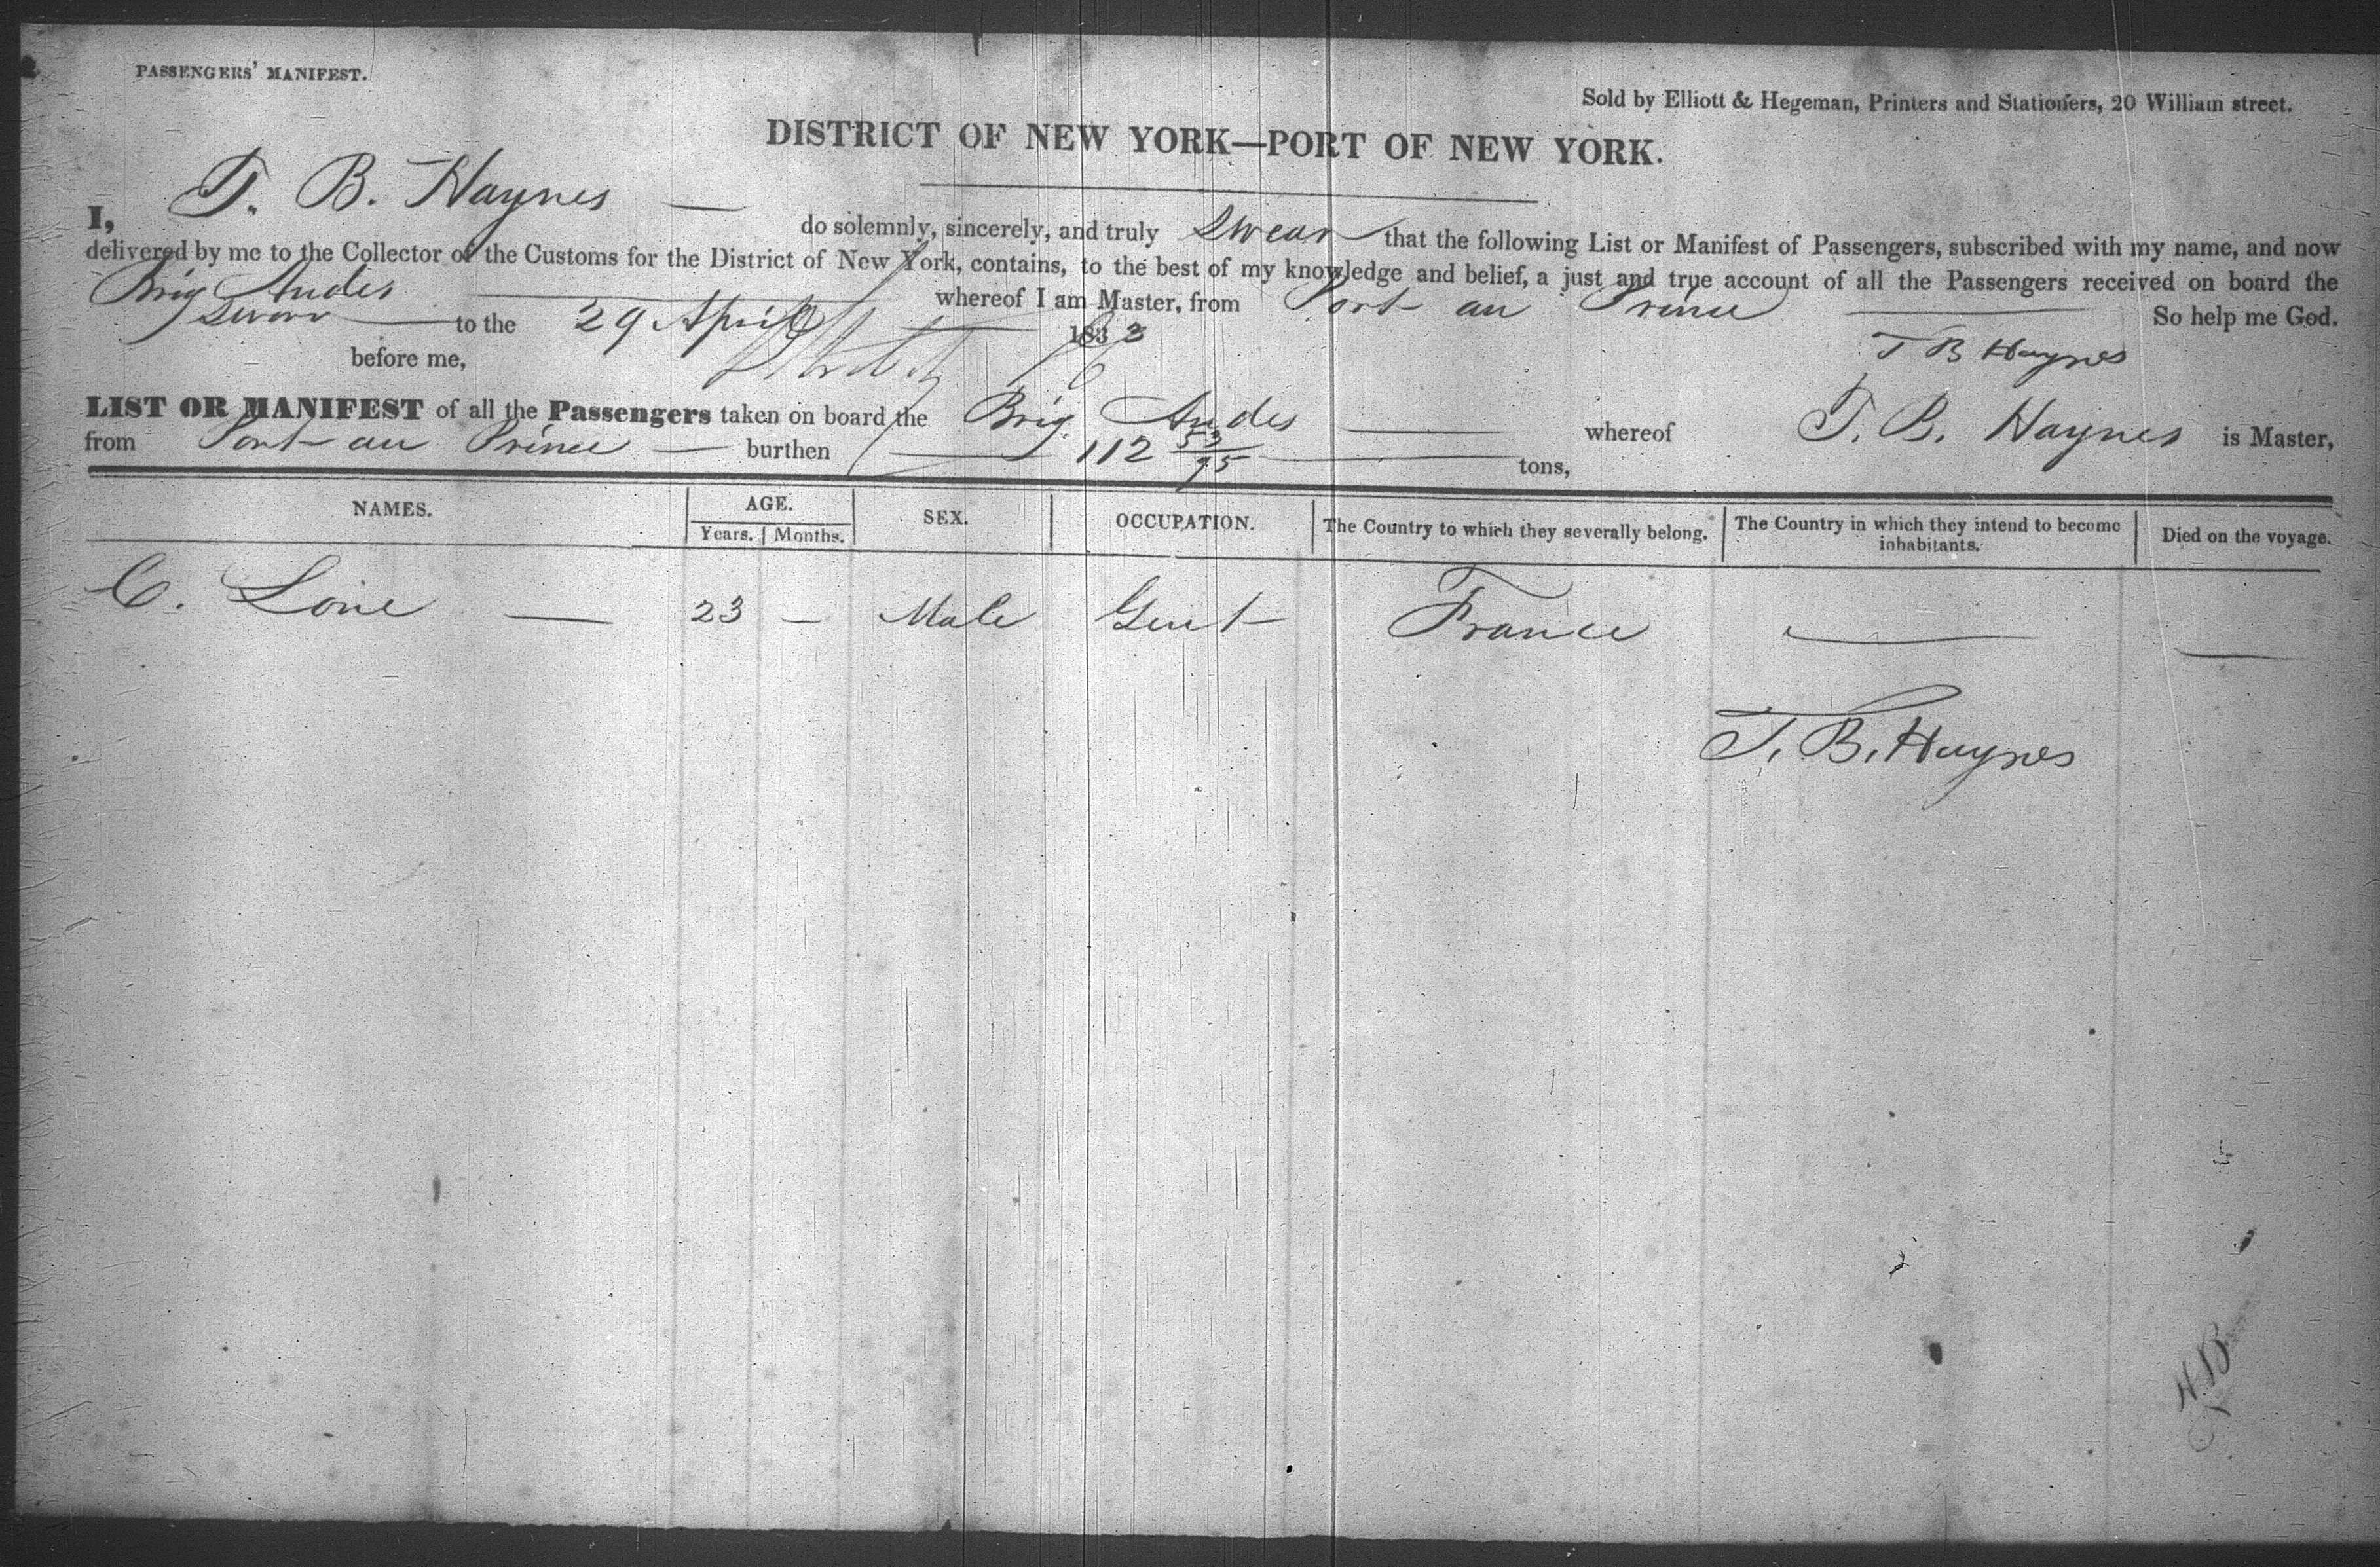 PASSENGERS' MANIFEST.
Sold by Elliott & Hegeman, Printers and Stationers, 20 William street.
DISTRICT OF NEW YORK—PORT OF NEW YORK.
I, T. B. Haynes — do solemnly, sincerely, and truly swear that the following List or Manifest of Passengers, subscribed with my name, and now
delivered by me to the Collector of the Customs for the District of New York, contains, to the best of my knowledge and belief, a just and true account of all the Passengers received on board the
Brig Andes whereof I am Master, from Port au Prince So help me God.
Sworn to the 29 April 1833
T B Haynes
before me,
LIST OR MANIFEST of all the Passengers taken on board the Brig Andes whereof T. B. Haynes is Master,
from Port au Prince — burthen 112 53/95 tons,
NAMES. AGE. SEX. OCCUPATION. The Country to which they severally belong. The Country in which they intend to become inhabitants. Died on the voyage.
Years. Months.
C. Lone — 23 — Male Gent France — —
T. B. Haynes